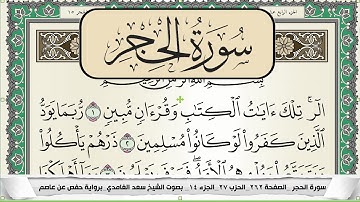 سورة الحجر
بسم الله الرحمن الرحيم
الٓر ۚ تِلْكَ ءَايَٰتُ ٱلْكِتَٰبِ وَقُرْءَانٍ مُّبِينٍ ١ رُّبَمَا يَوَدُّ
ٱلَّذِينَ كَفَرُوا۟ لَوْ كَانُوا۟ مُسْلِمِينَ ٢ ذَرْهُمْ يَأْكُلُوا۟
سورة الحجر الصفحة ٢٦٢ الحزب ٢٧ الجزء ١٤ بصوت الشيخ سعد الغامدي برواية حفص عن عاصم